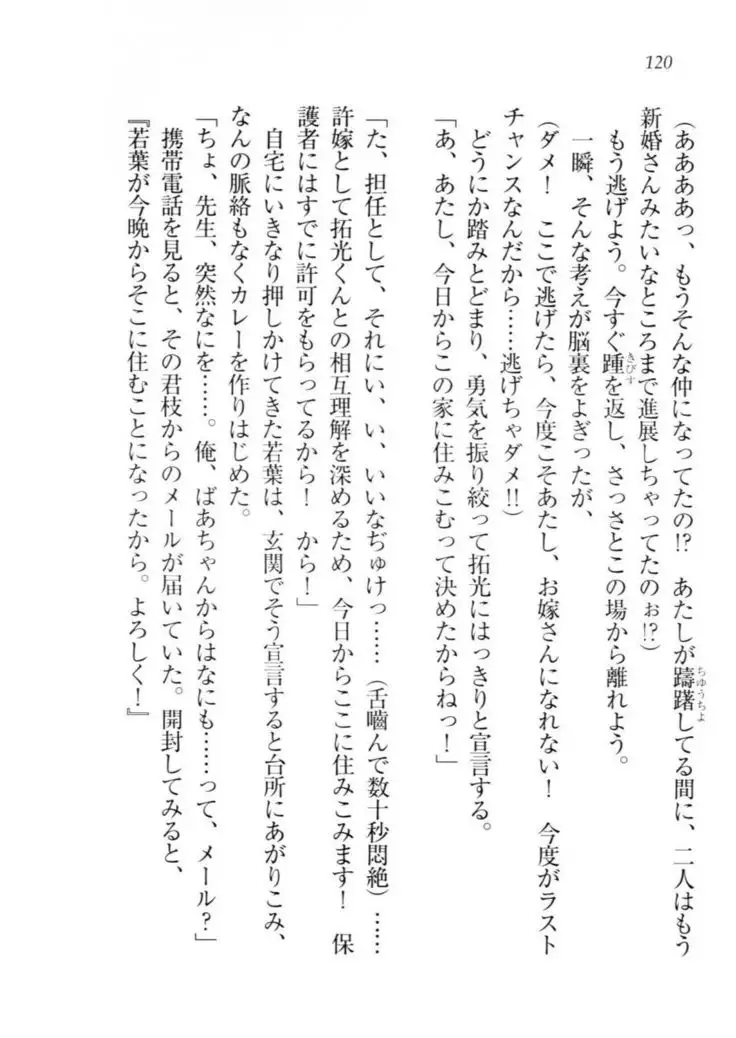 120
（ああああっ、もうそんな仲になってたの!?　あたしが躊躇してる間に、二人はもう
ちゆうちよ
新婚さんみたいなところまで進展しちゃってたのぉ!?）
もう逃げよう。今すぐ踵を返し、さっさとこの場から離れよう。
きびす
一瞬、そんな考えが脳裏をよぎったが、
（ダメ！　ここで逃げたら、今度こそあたし、お嫁さんになれない！　今度がラスト
チャンスなんだから……逃げちゃダメ!!）
どうにか踏みとどまり、勇気を振り絞って拓光にはっきりと宣言する。
「あ、あたし、今日からこの家に住みこむって決めたからねっ！」
「た、担任として、それにい、い、いいなぢゅけっ……（舌嚙んで数十秒悶絶）……
許嫁として拓光くんとの相互理解を深めるため、今日からここに住みこみます！　保
護者にはすでに許可をもらってるから！　から！」
自宅にいきなり押しかけてきた若葉は、玄関でそう宣言すると台所にあがりこみ、
なんの脈絡もなくカレーを作りはじめた。
「ちょ、先生、突然なにを……。俺、ばあちゃんからはなにも……って、メール？」
携帯電話を見ると、その君枝からのメールが届いていた。開封してみると、
『若葉が今晩からそこに住むことになったから。よろしく！』